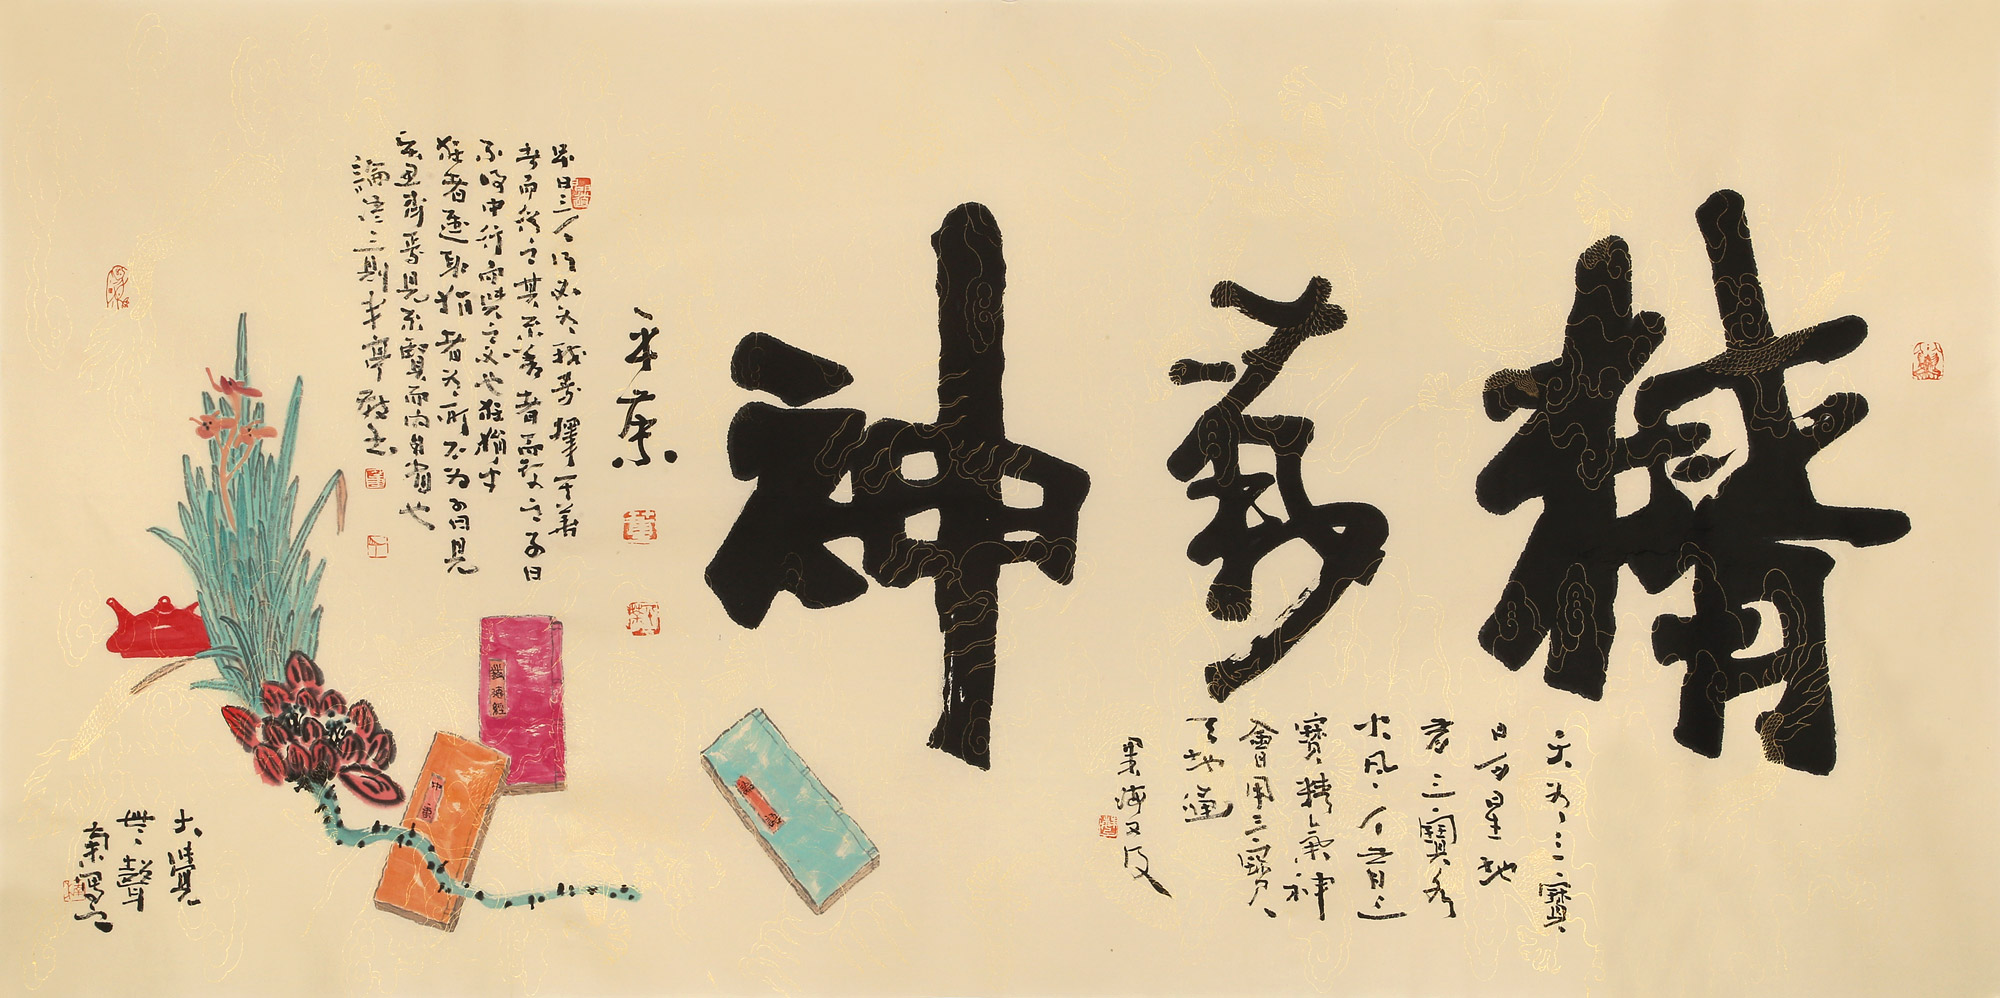 精
氣
神
天有三寶
日月星地
有三寶水
火風人有三
寶精氣神
會用三寶
天地通
墨海又及
子曰三人行必有我師擇其善
者而從之其不善者而改之子曰
不得中行而與之必也狂狷乎
狂者進取狷者有所不為子曰見
賢思齊焉見不賢而內自省也
論語三則半亭敬書
道德經
中庸
論語
大覺